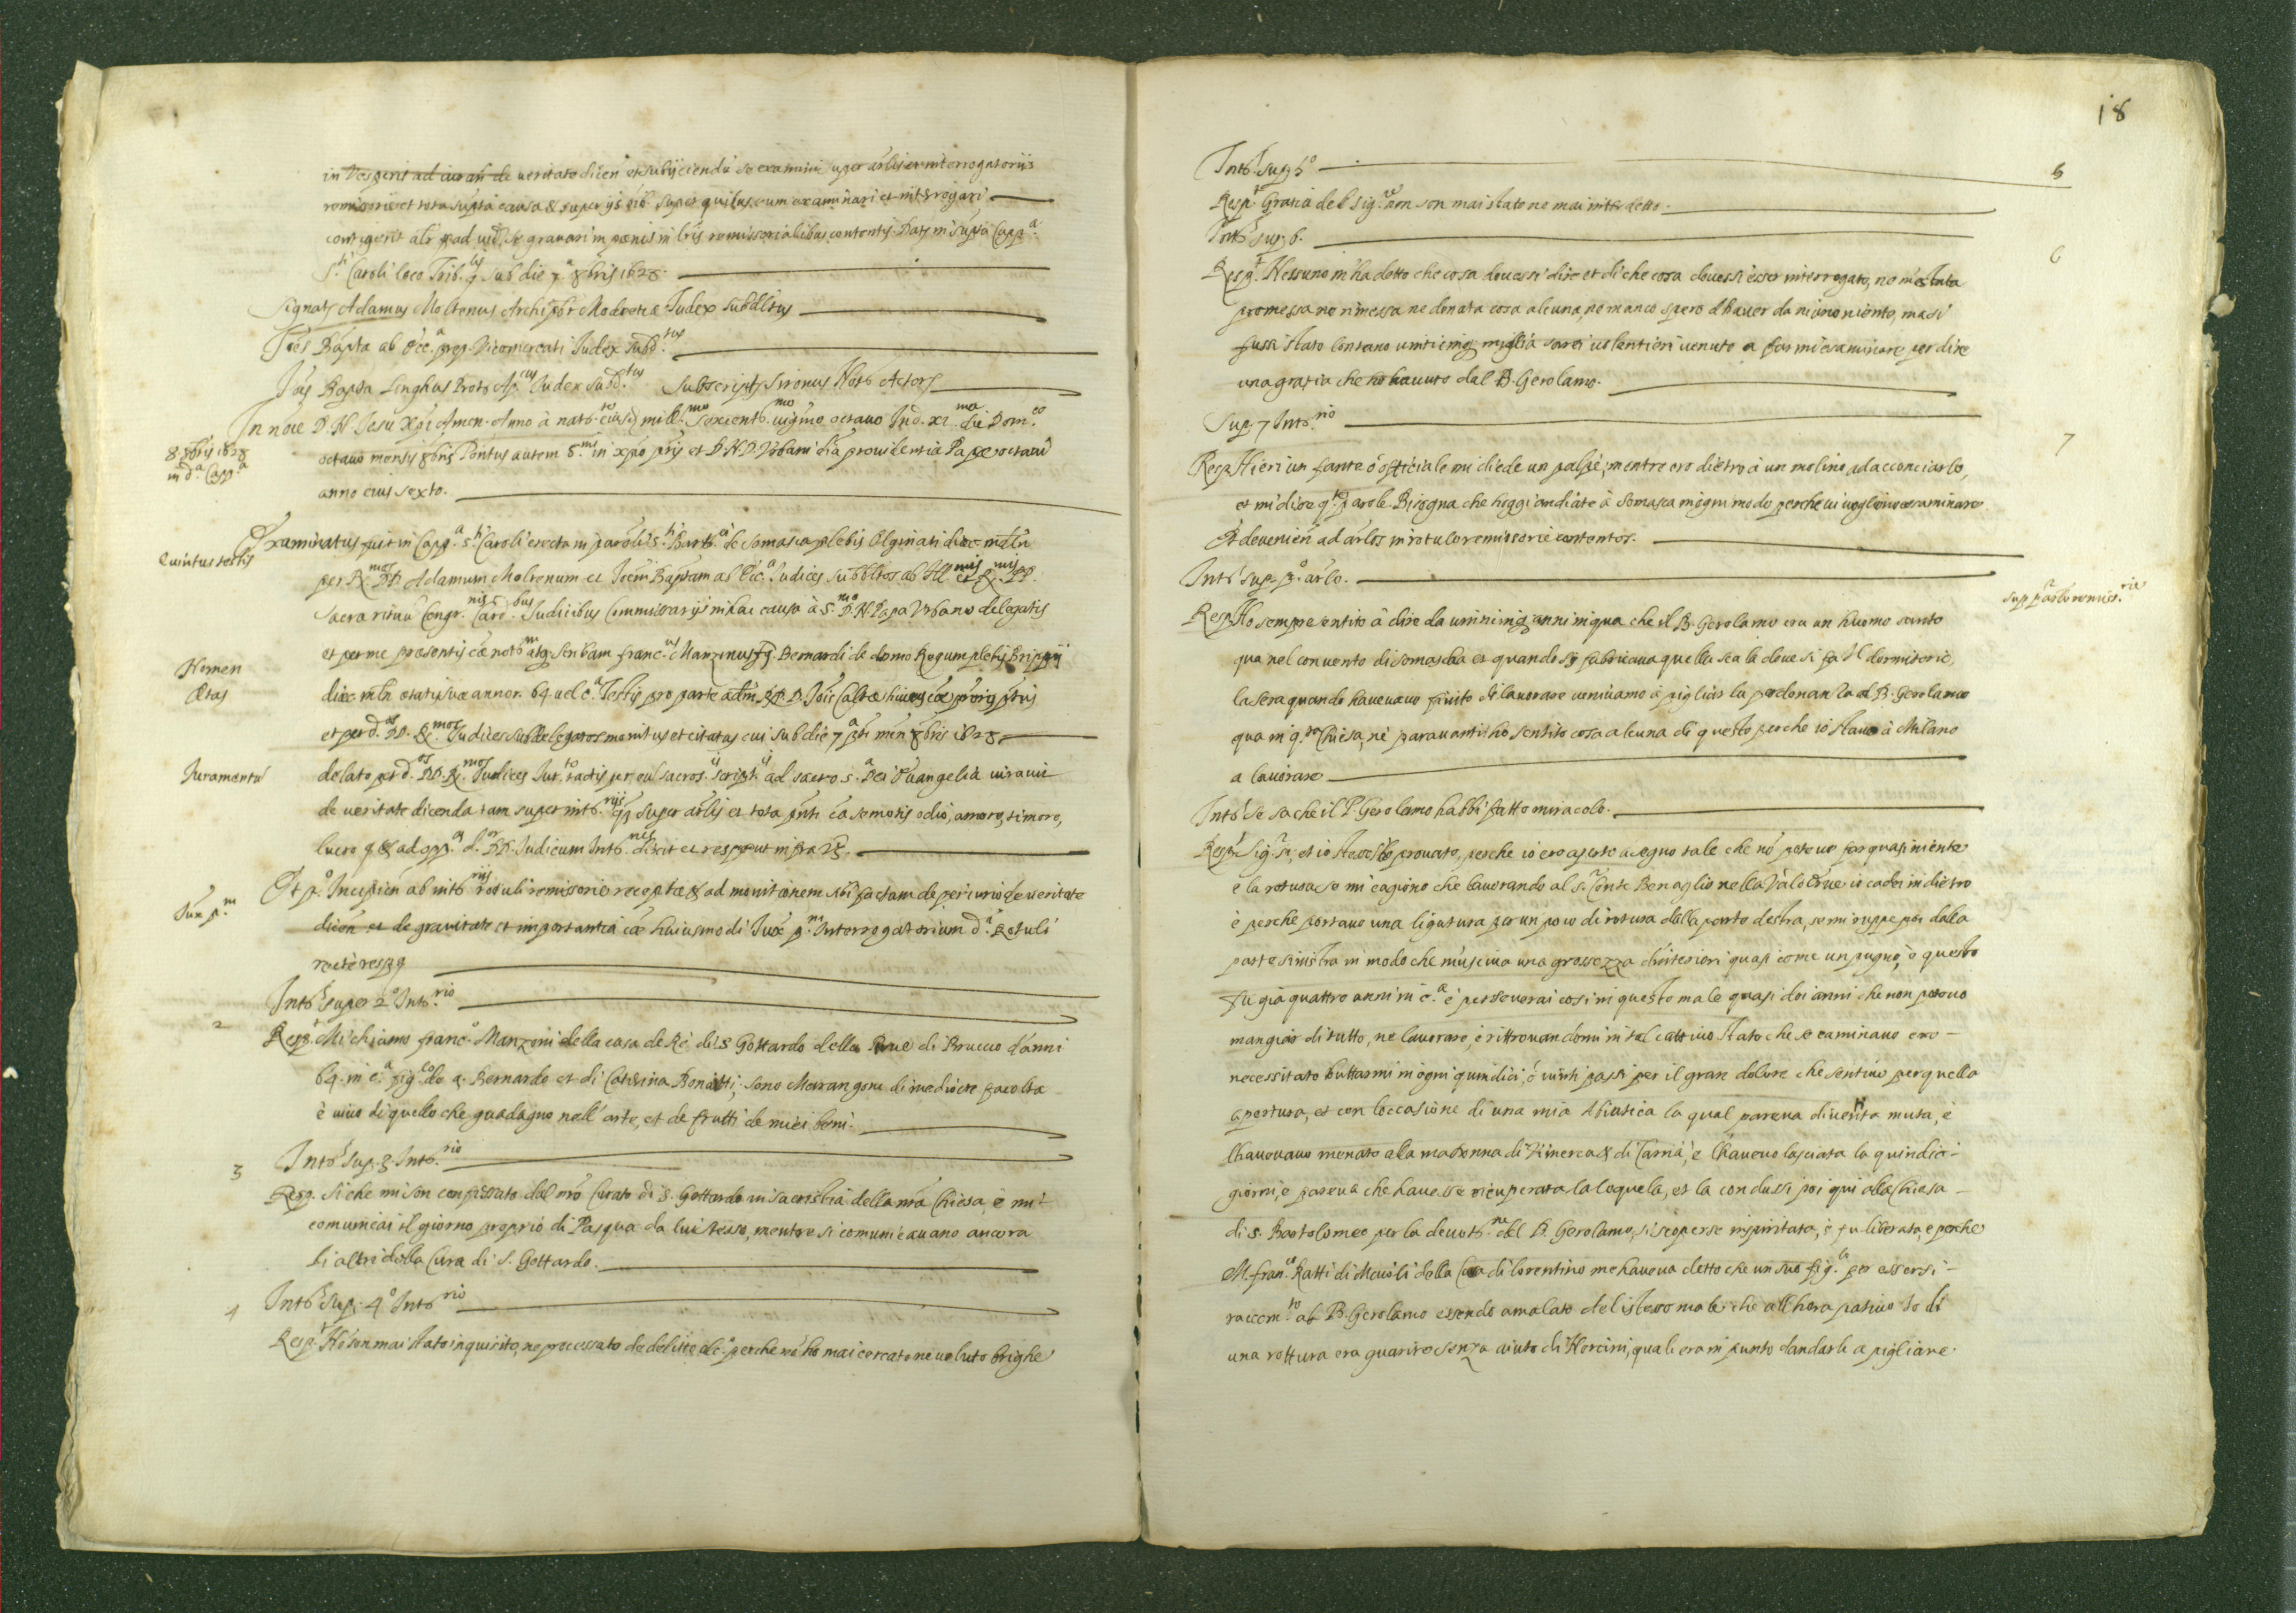 in Vesperis ad iurandum de veritate dicen et subijciendu se examini super artis et interrogatoriis
remissorie et tota supta causa & super ijs oib. super quibus eum examinari et interrogari
contigerit als ad grauari in poenis in lris remissorialibus contentis Dats in supta Capp.a
S.ti Caroli loco Trib. sub die 7.a 8bris 1628.
Signats Adamus Moltenus Archipbr Modoetiæ Iudex subdltus
Ioes Bapta ab Occ.a prep. Vicomercati Iudex subd.tus
Ioes Bapta Linghus Prots Ap.cus Iudex subd.tus Subscripts Sironus Nots Actors
In noie D. N. Iesu Xpi Amen. Anno à natb.te eiusd mill.mo sexcent.mo vigmo octauo Ind. XI.ma die Dom.co
8 8bris 1628
in d.a Capp.a
octauo mensis 8bris Pontus autem S.mi in xpo pris et D.N.D. Vrbani diâ prouidentia Papæ octaui
anno eius sexto.
Quintus testis
Examinatus fuit in Capp.a s.ti Caroli erecta in paroli s.ti Bart.ei de Somasca plebis Olginati dioc mlln
per R.mos DD. Adamum Moltenum et Ioem Baptam ab Occ.a Iudices subdltos ab Ill.mis et R.mis PP.
sacra rituu Congr.nis Card.bus Iudicibus Commissarijs in hac causa à S.mo D.N. Papa Vrbano delegatis
Nomen
et per me presentis cæ notm atq. scribam Franc.us Manzinus fq. Bernardi de domo Regum plebis Brippij
Ætas
dioc mln ætatis suæ annor. 64 uel c.a Testis pro parte
et per d.os DD. R.mos Iudices subdelegatos monitus et citatus cui sub die 7.a pti men. 8bris 1628
Iuramentu
delato per d.os DD. R.mos Iudices Iur.to tactis per eu sacros. script. ad sacro s.a Dei Euangelia iurauit
de veritate dicenda tam super intb.rijs q super artis et tota pnti ca semotis odio, amore, timore,
lucro & ad opp. d. DD. Iudicum Intb.nis dixit et respput infra
Sup p.m
Et p.o Incipien ab intb.rijs rotuli remissorie recepta & ad monitionem sibi factam de periurio de veritate
dicen et de grauitate et importantia cæ huiusmodi Iux p.m Interrogatorium d.i Rotuli
recte resp
Intb.s super 2.o Intb.rio
2
Resp. Mi chiamo Franc.o Manzoni della casa de Rè di S. Gottardo della Pieue di Briuio d'anni
64 in c.a fig.lo de q. Bernardo et di Caterina Bonatti; sono Marangone di mediocre facolta
è uiuo di quello che guadagno nell'arte, et de frutti de miei beni.
3
Intb.s sup. 3 Intb.rio
Resp. Si che mi son confessato dal nro Curato di S. Gottardo in sacristia della nra Chiesa, e mi
comunicai il giorno proprio di Pasqua da lui stesso, mentre si comunicauano ancora
li altri della Cura di S. Gottardo.
4
Intb.s sup. 4.o Intb.rio
Resp. Nō son mai stato inquisito, ne processato de delitto alc.o perche nō ho mai cercato ne uoluto brighe
18
Intb.s sup 5.o
5
Resp. Gratia del Sig.re non son mai stato ne mai interdetto.
Intb.s sup. 6.
6
Resp. Nessuno m'ha detto che cosa douessi dire et di che cosa douessi esser interrogato, ne m'è stata
promessa ne rimessa ne donata cosa alcuna, ne manco spero d'hauer da niuno niente, ma si
fussi stato lontano uinticinq miglia sarei uolentieri uenuto a farmi esaminare per dire
una gratia che ho hauuto dal B. Gerolamo.
Sup. 7 Intb.rio
7
Resp. Hieri un fante ò officiale mi diede un palpè, mentre ero dietro à un molino ad acconciarlo,
et mi disse q.te parole. Bisogna che hoggi andiate à Somasca in ogni modo perche ui uogliono esaminare
Et deuenien ad artlos in rotulo remissorie contentos.
Intb.s sup. p.o artlo.
sup p.o artlo remiss.rie
Resp. Ho sempre sentito à dire da uinticinq anni in qua che il B. Gerolamo era un huomo santo
qua nel conuento di Somascha et quando si fabricaua quella scala doue si fa il dormitorio,
la sera quando haueuamo finito di lauorare ueniuamo à pigliar la perdonanza al B. Gerolamo
qua in q.ta Chiesa, ne parauanti ho sentito cosa alcuna di questo perche io stauo à Milano
a lauorare
Intb.s se sa che il P. Gerolamo habbi fatto miracolo.
Resp. Sig.r si, et io stesso l'ho prouato, perche io ero aperto a segno tale che nō poteuo far quasi niente
e la rottura se mi cagionò che lauorando al S.r Conte Benaglio nella Val d'Erue io cadei in dietro
è perche portauo una ligatura per un poco di rotura dalla parte destra, se mi ruppe poi dalla
parte sinistra in modo che m'usciua una grossezza d'interiori quasi come un pugno, è questo
fu già quattro anni in c.a è perseuerai cosi in questo male quasi doi anni che non poteuo
mangiar di tutto, ne lauorare, è rittrouandomi in tal cattiuo stato che se caminauo ero
necessitato buttarmi in ogni quindici, ò uinti passi per il gran dolore che sentiuo per quella
apertura, et con l'occasione di una mia Abiatica la qual pareua diuentta muta, è
l'haueuano menata alla madonna di Vimercat di Carnà, e l'haueuo lasciata la quindici
giorni, e pareua che hauesse ricuperata la loquela, et la condussi poi qui alla Chiesa
di S. Bartolomeo per la deuott.ne del B. Gerolamo, si scoperse inspiritata, è fu liberata, e perche
M. Fran.co Ratti di Maioli della Cura di Lorentino me haueua detto che un suo fig.lo per essersi
raccom.to al B. Gerolamo essendo amalato del istesso male che all'hora patiuo io di
una rottura era guarito senza aiuto di Norcini, quali era in punto d'andarli a pigliare.